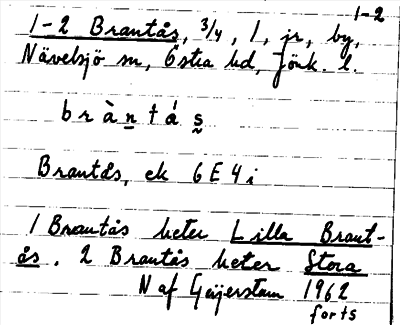 1-2
1-2 Brantås, 3/4, 1, jr, by,
Nävelsjö sn, Östra hd, Jönk. l.
b r à n t á s
Brantås, ek 6E4i
1 Brantås heter Lilla Brant-
ås. 2 Brantås heter Stora
N af Geijerstam 1962
forts